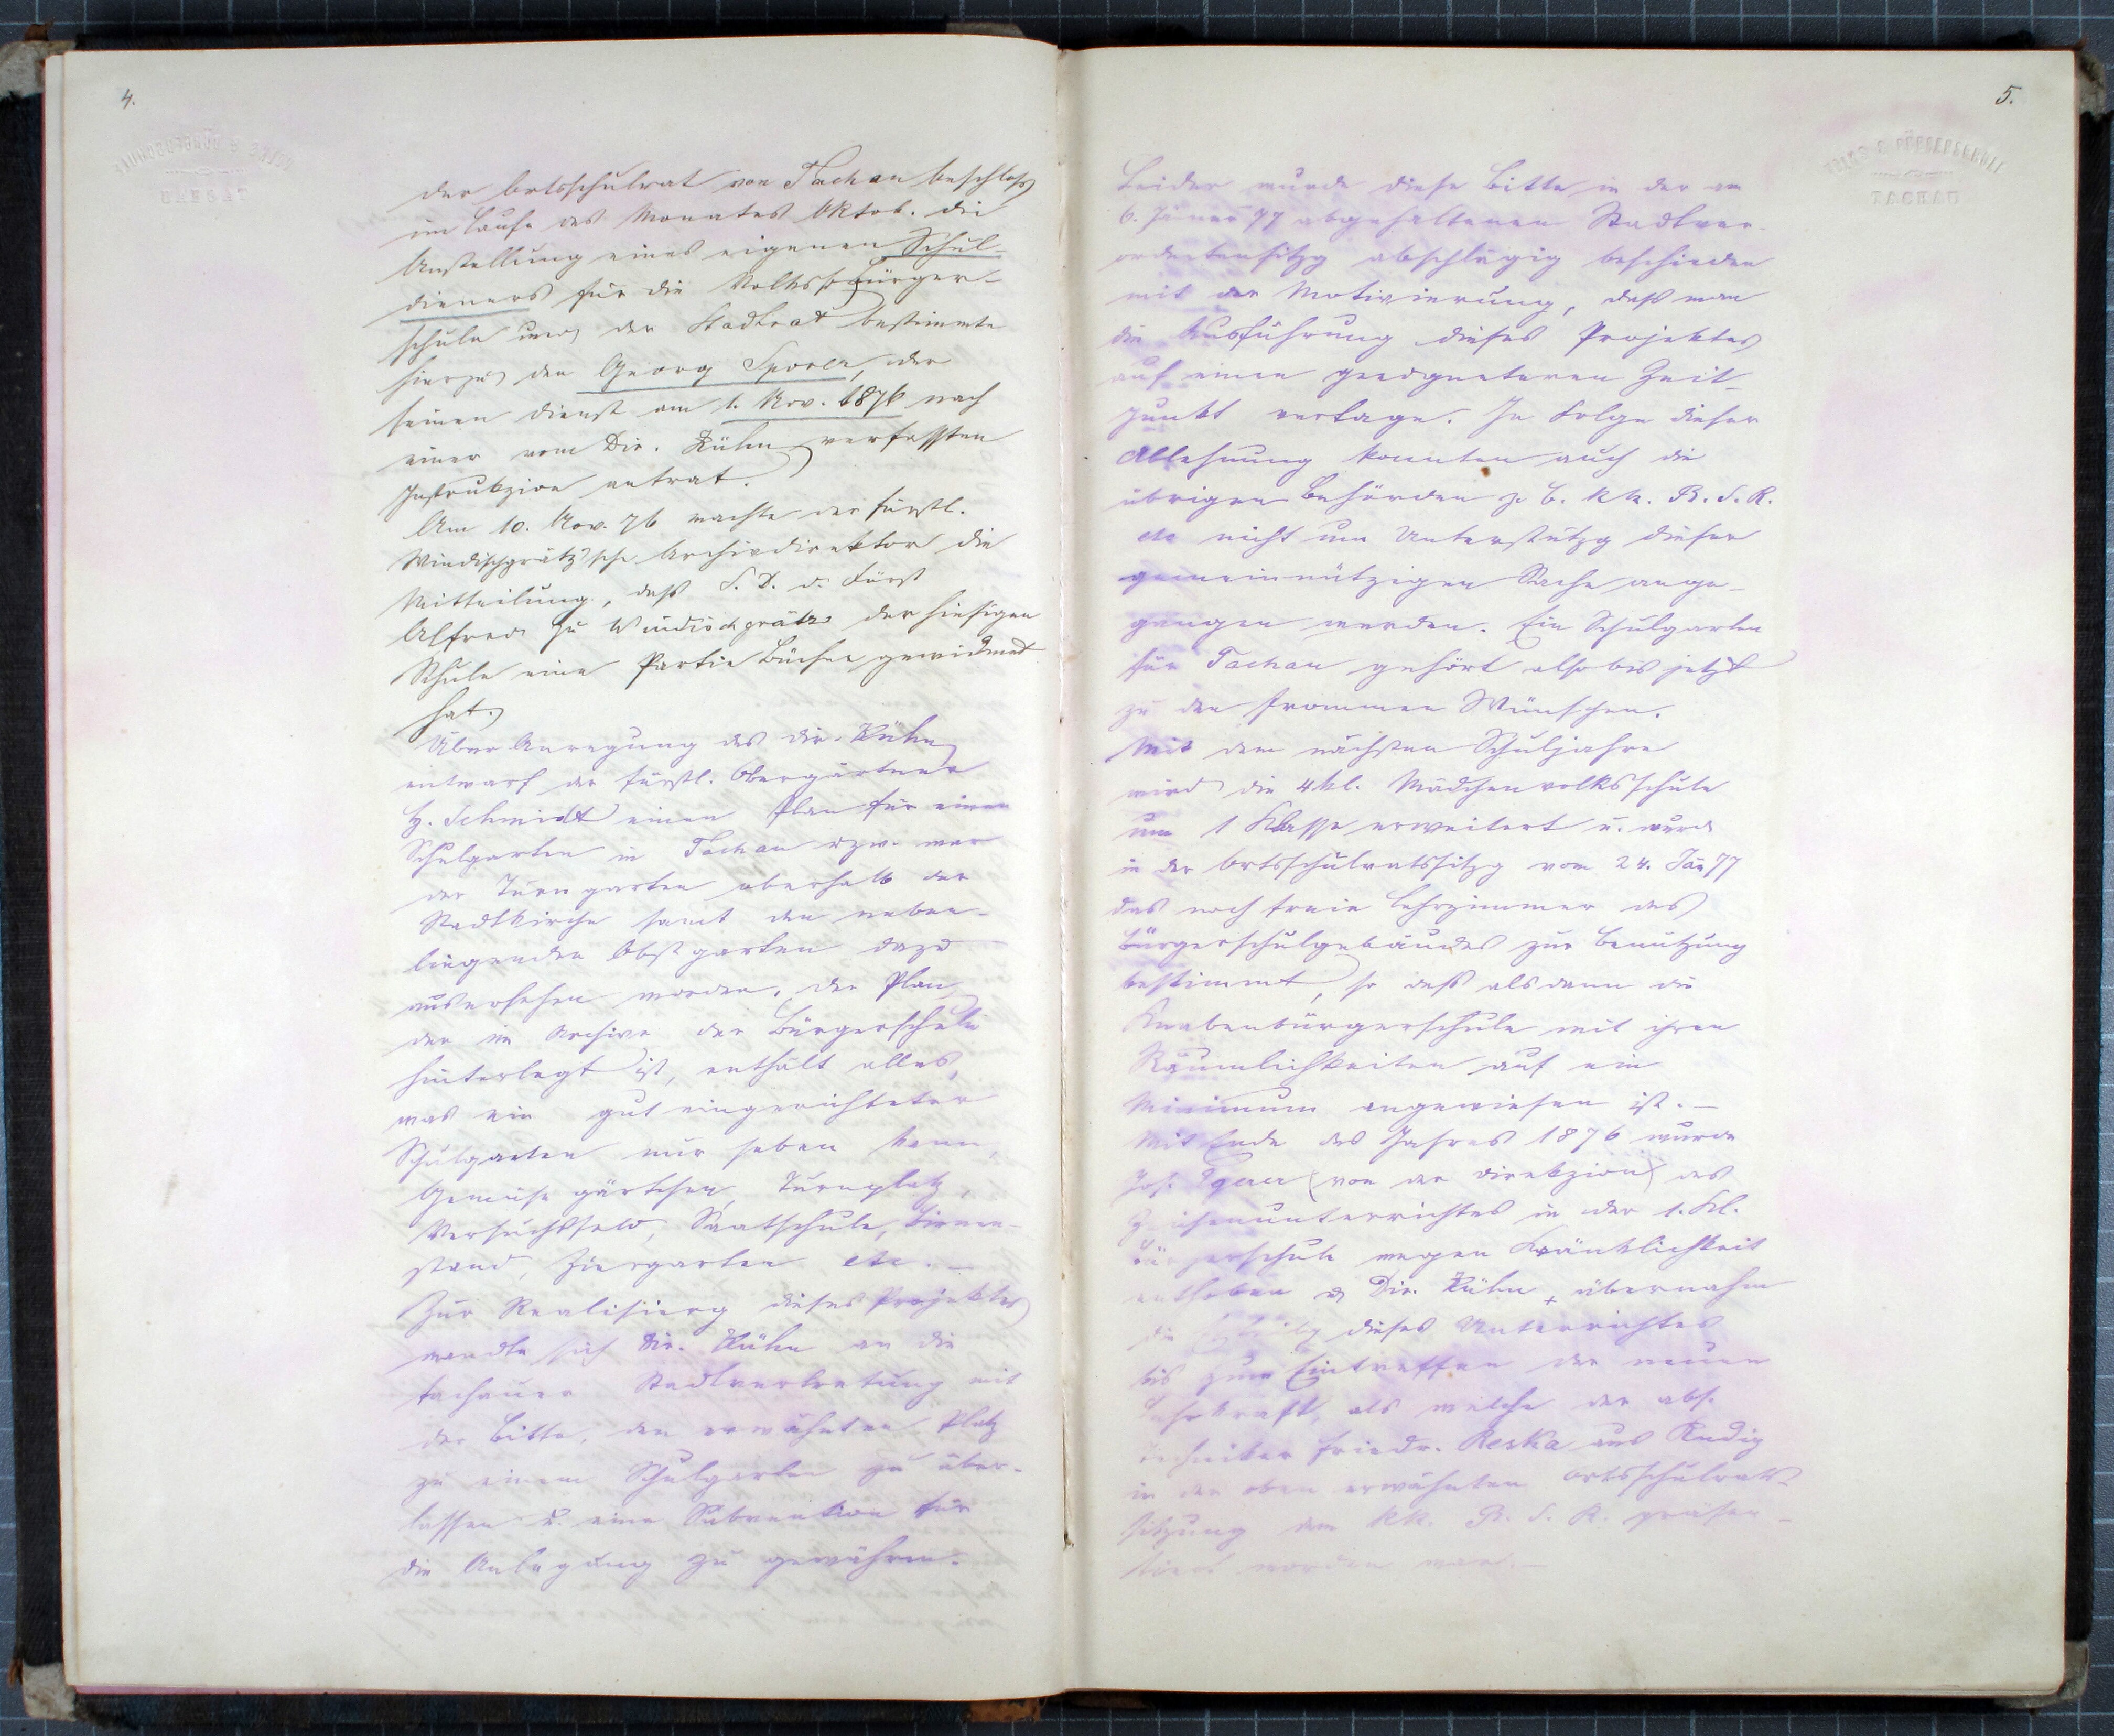 4.
der Ortsschulrat von Tachau beschloß
im Laufe des Monates Oktob. die
Anstellung eines eigenen Schul-
dieners für die Volks- u. Bürger-
schule und der Stadtrat bestimmte
hierzu den Georg Sporer, der
seinen Dienst am 1. Nov. 1876 nach
einer vom Dir. Kühn verfassten
Instrukzion antrat.
Am 10. Nov. 76 machte der fürstl.
Windischgrätz'sche Archivdirektor die
Mitteilung, daß S. D. d. Fürst
Alfred zu Windischgrätz der hiesigen
Schule eine Partie Bücher gewidmet
hat.
Über Anregung des Dir. Kühn
entwarf der fürstl. Obergärtner
H. Schmidt einen Plan für einen
Schulgarten in Tachau uzw. war
der Turngarten oberhalb der
Stadtkirche samt den neben-
liegenden Obstgarten dazu
ausersehen worden. Der Plan
der im Archive der Bürgerschule
hinterlegt ist, enthält alles,
was ein gut eingerichteter
Schulgarten nur haben kann,
Gemüsegärtchen, Turnplatz,
Versuchsfeld, Saatschule, Bienen-
stand, Ziergarten etc. –
Zur Realisierg dieses Projektes
wandte sich Dir. Kühn an die
tachauer Stadtvertretung mit
der Bitte, den erwähnten Platz
zu einem Schulgarten zu über-
lassen u. eine Subvention für
die Anlegung zu gewähren.
5.
VOLKS & BÜRGERSCHULE
TACHAU
Leider wurde diese Bitte in der am
6. Jänner 77 abgehaltenen Stadtver-
ordnetensitzg abschlägig beschieden
mit der Motivierung, daß man
die Ausführung dieses Projektes
auf einen geeigneteren Zeit-
punkt vertage. In Folge dieser
Ablehnung konnten auch die
übrigen Behörden z. B. k.k. B. S. R.
etc nicht um Unterstützg dieser
gemeinnützigen Sache ange-
gangen werden. Ein Schulgarten
für Tachau gehört also bis jetzt
zu den frommen Wünschen.
Mit dem nächsten Schuljahre
wird die 4kl. Mädchenvolksschule
um 1 Klasse erweitert u. wurde
in der Ortsschulratssitzg vom 24. Jän 77
das noch freie Lehrzimmer des
Bürgerschulgebäudes zur Benützung
bestimmt, so daß alsdann die
Knabenbürgerschule mit ihren
Räumlichkeiten auf ein
Minimum angewiesen ist. –
Mit Ende des Jahres 1876 wurde
Jos. (von der Direkzion) des
Zeichenunterrichtes in der 1. Kl.
Bürgerschule wegen Kränklichkeit
enthoben u. Dir. Kühn übernahm
die dieses Unterrichtes
bis zum Eintreffen der neuen
Lehrkraft, als welche der abs.
Techniker Friedr. Reska aus Kudig
in der oben erwähnten Ortsschulrats-
sitzung dem k.k. B. S. R. präsen-
tiert worden war. –